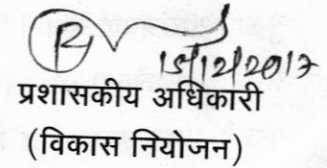 15/12/2017
प्रशासकीय अधिकारी
(विकास नियोजन)